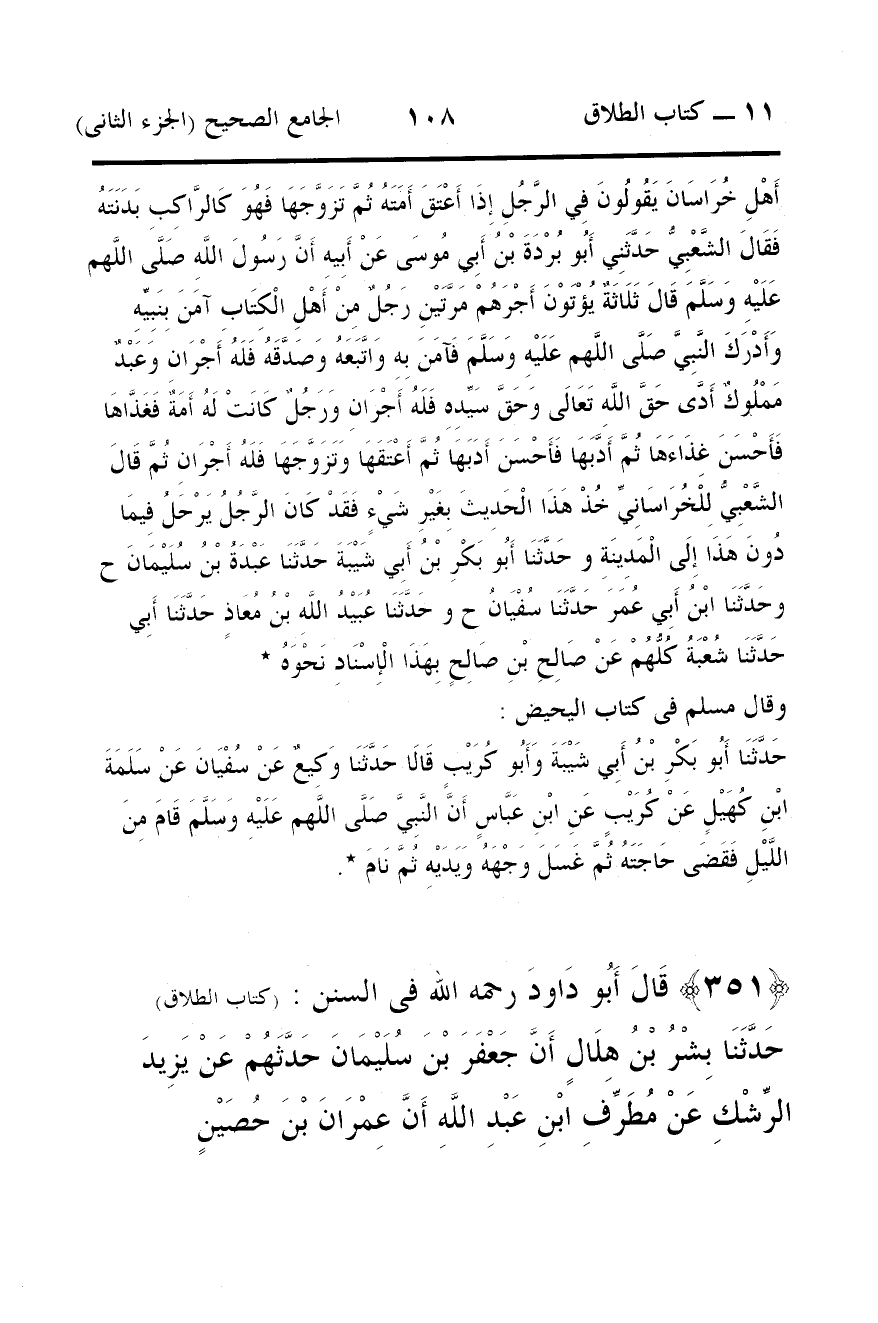 ١١ ــ كتاب الطلاق ١٠٨ الجامع الصحيح (الجزء الثانى)
أَهْلِ خُرَاسَانَ يَقُولُونَ فِي الرَّجُلِ إِذَا أَعْتَقَ أَمَتَهُ ثُمَّ تَزَوَّجَهَا فَهُوَ كَالرَّاكِبِ بَدَنَتَهُ
فَقَالَ الشَّعْبِيُّ حَدَّثَنِي أَبُو بُرْدَةَ بْنُ أَبِي مُوسَى عَنْ أَبِيهِ أَنَّ رَسُولَ اللهِ صَلَّى اللهم
عَلَيْهِ وَسَلَّمَ قَالَ ثَلَاثَةٌ يُؤْتَوْنَ أَجْرَهُمْ مَرَّتَيْنِ رَجُلٌ مِنْ أَهْلِ الْكِتَابِ آمَنَ بِنَبِيِّهِ
وَأَدْرَكَ النَّبِيَّ صَلَّى اللهم عَلَيْهِ وَسَلَّمَ فَآمَنَ بِهِ وَاتَّبَعَهُ وَصَدَّقَهُ فَلَهُ أَجْرَانِ وَعَبْدٌ
مَمْلُوكٌ أَدَّى حَقَّ اللهِ تَعَالَى وَحَقَّ سَيِّدِهِ فَلَهُ أَجْرَانِ وَرَجُلٌ كَانَتْ لَهُ أَمَةٌ فَغَذَّاهَا
فَأَحْسَنَ غِذَاءَهَا ثُمَّ أَدَّبَهَا فَأَحْسَنَ أَدَبَهَا ثُمَّ أَعْتَقَهَا وَتَزَوَّجَهَا فَلَهُ أَجْرَانِ ثُمَّ قَالَ
الشَّعْبِيُّ لِلْخُرَاسَانِيِّ خُذْ هَذَا الْحَدِيثَ بِغَيْرِ شَيْءٍ فَقَدْ كَانَ الرَّجُلُ يَرْحَلُ فِيمَا
دُونَ هَذَا إِلَى الْمَدِينَةِ و حَدَّثَنَا أَبُو بَكْرِ بْنُ أَبِي شَيْبَةَ حَدَّثَنَا عَبْدَةُ بْنُ سُلَيْمَانَ ح
و حَدَّثَنَا ابْنُ أَبِي عُمَرَ حَدَّثَنَا سُفْيَانُ ح و حَدَّثَنَا عُبَيْدُ اللهِ بْنُ مُعَاذٍ حَدَّثَنَا أَبِي
حَدَّثَنَا شُعْبَةُ كُلُّهُمْ عَنْ صَالِحِ بْنِ صَالِحٍ بِهَذَا الْإِسْنَادِ نَحْوَهُ *
وقال مسلم فى كتاب اليحيض :
حَدَّثَنَا أَبُو بَكْرِ بْنُ أَبِي شَيْبَةَ وَأَبُو كُرَيْبٍ قَالَا حَدَّثَنَا وَكِيعٌ عَنْ سُفْيَانَ عَنْ سَلَمَةَ
ابْنِ كُهَيْلٍ عَنْ كُرَيْبٍ عَنِ ابْنِ عَبَّاسٍ أَنَّ النَّبِيَّ صَلَّى اللهم عَلَيْهِ وَسَلَّمَ قَامَ مِنَ
اللَّيْلِ فَقَضَى حَاجَتَهُ ثُمَّ غَسَلَ وَجْهَهُ وَيَدَيْهِ ثُمَّ نَامَ *.
﴿٣٥١﴾ قَالَ أَبُو دَاودَ رحمه الله فى السنن : (كتاب الطلاق)
حَدَّثَنَا بِشْرُ بْنُ هِلَالٍ أَنَّ جَعْفَرَ بْنَ سُلَيْمَانَ حَدَّثَهُمْ عَنْ يَزِيدَ
الرِّشْكِ عَنْ مُطَرِّفِ ابْنِ عَبْدِ اللَّهِ أَنَّ عِمْرَانَ بْنَ حُصَيْنٍ